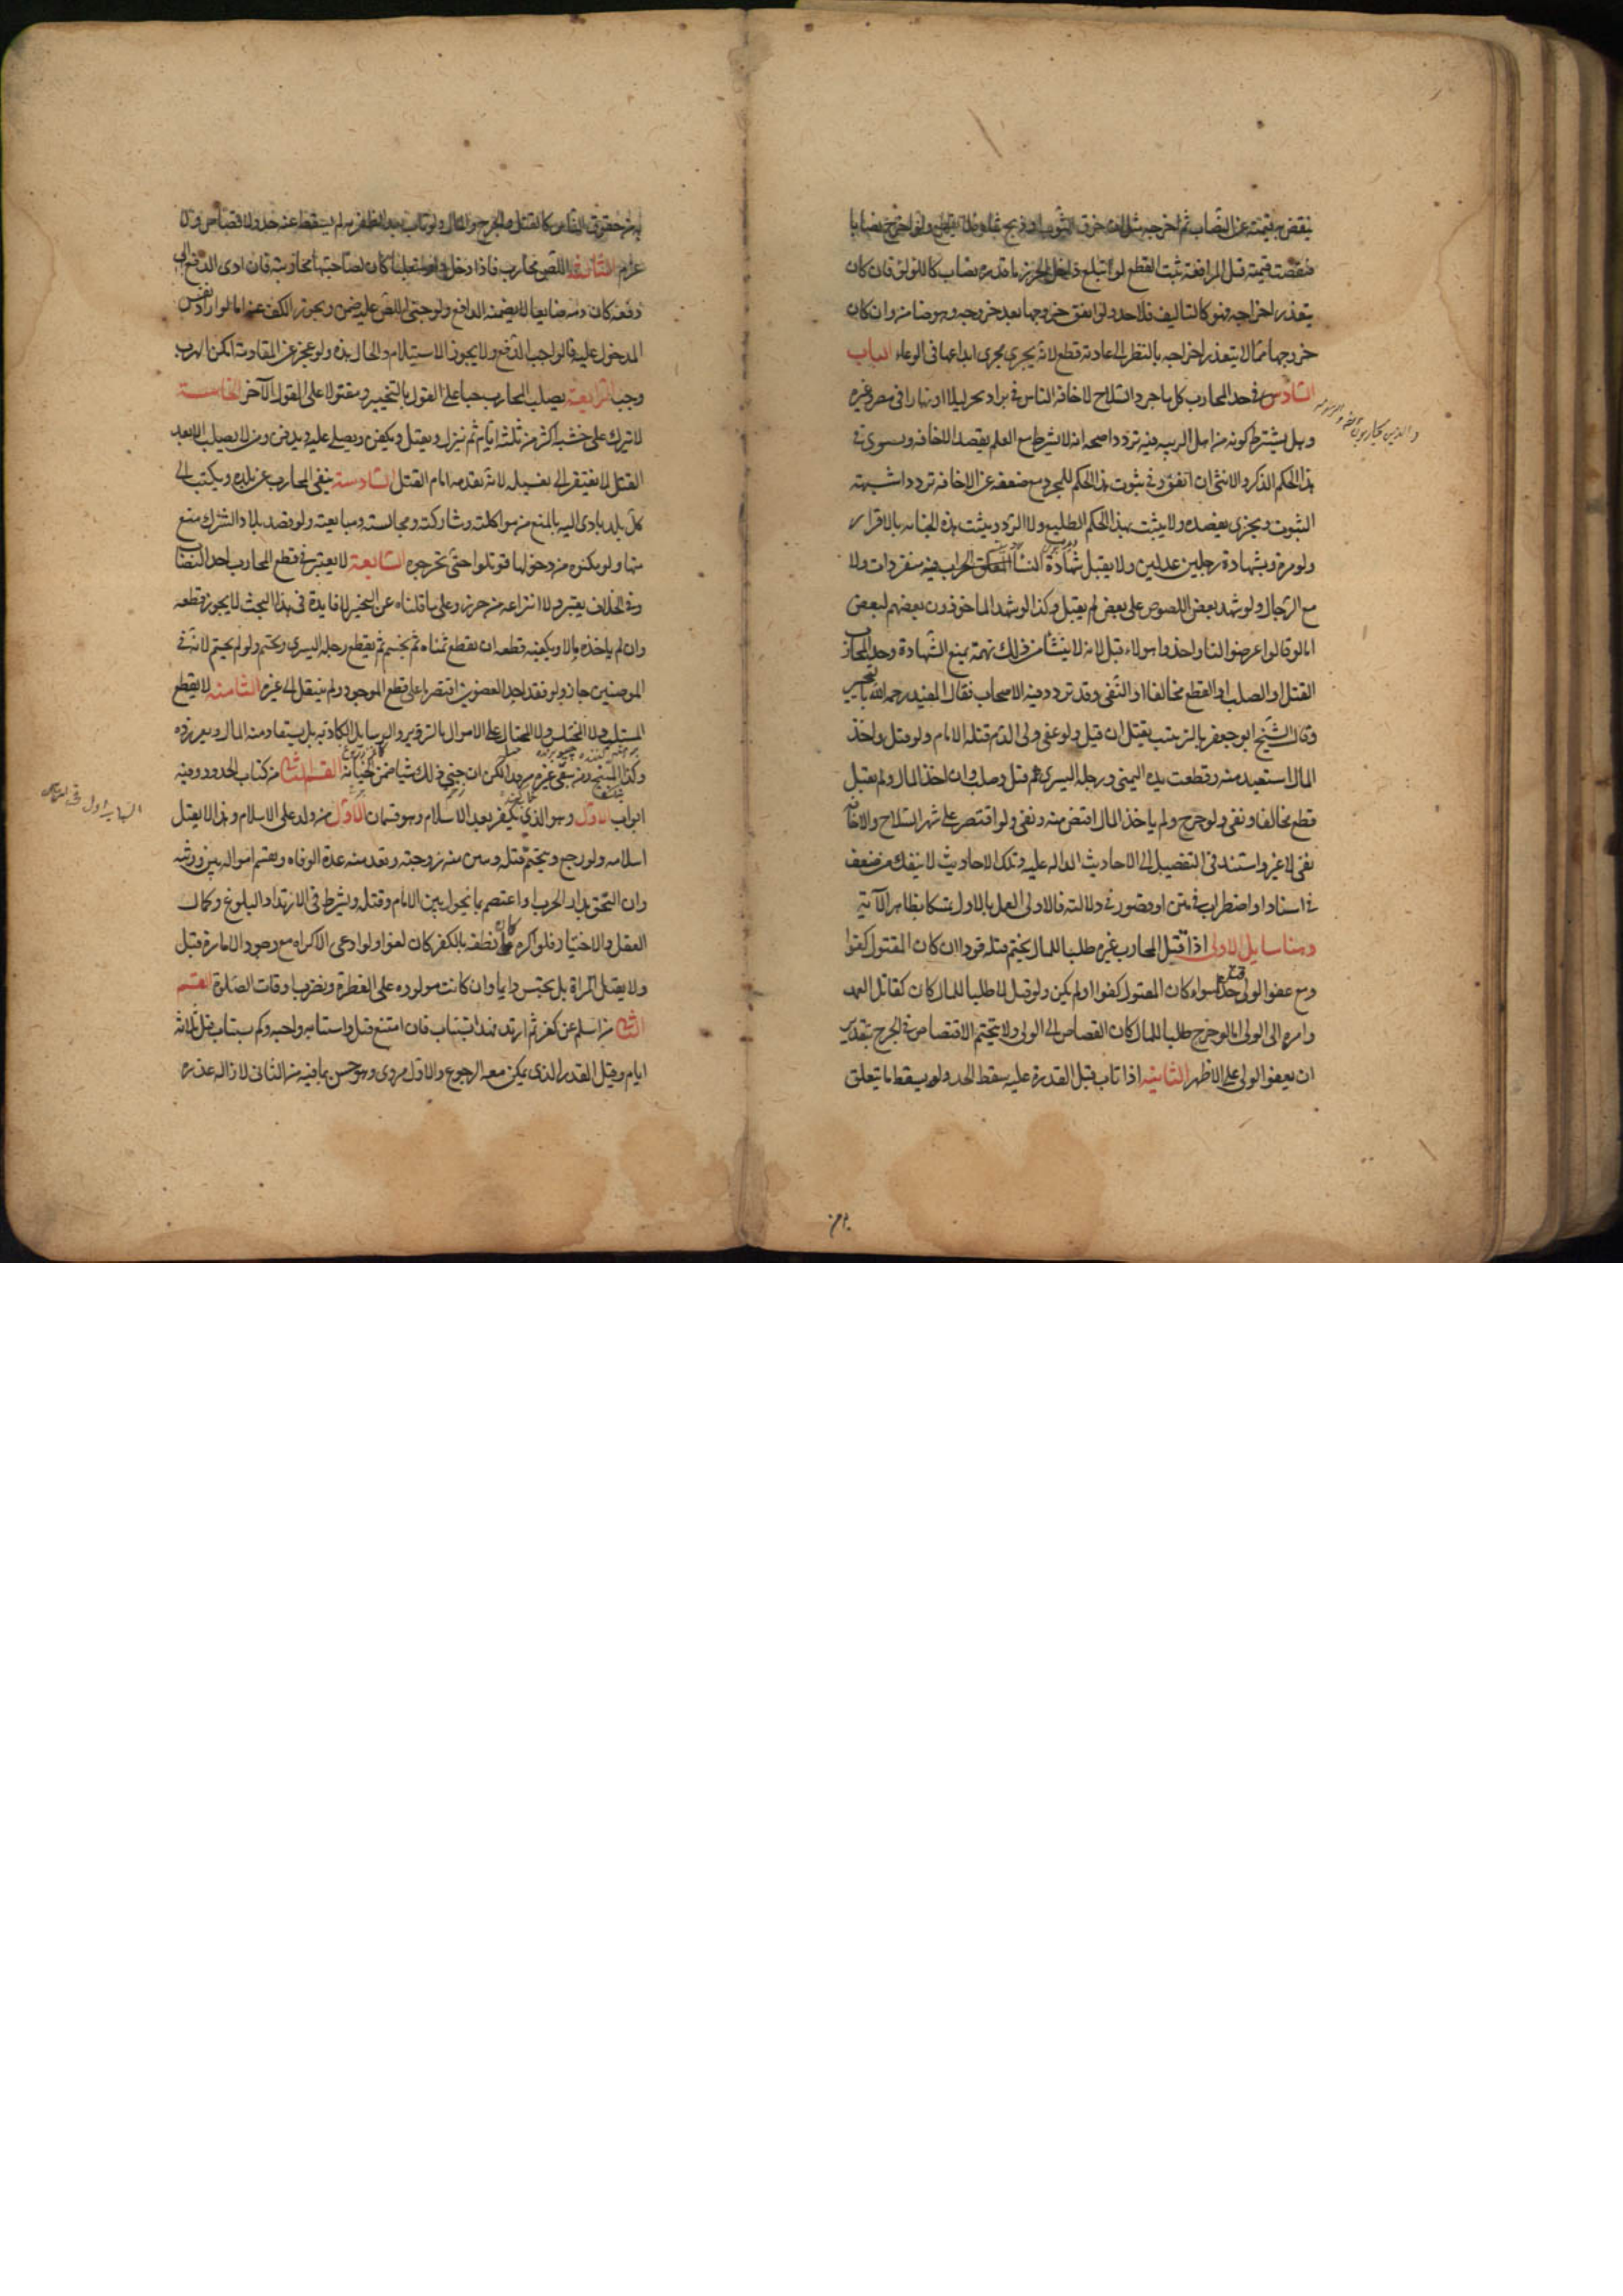 ينقص قيمته عن النصاب ثم اخرجه مثل ان خرق الثوب او ذبح شاة فلا قطع ولو اخرج نصابا
فنقصت قيمته قبل المرافعة ثبت القطع لو ابتلع داخل الحرز ما قدره نصاب كاللؤلؤ فان كان
يتعذر اخراجه فهو كالتالف فلا حد ولو اتفق خروجها بعد خروجه وهو ضامن وان كان
خروجها مما لا يتعذر اخراجه بالنظر الى عادته قطع لانه يجري مجرى ايداعها في الوعاء الباب
السادس في حد المحارب كل من جرد السلاح لاخافة الناس في بر او بحر ليلا او نهارا في مصر وغيره
وهل يشترط كونه من اهل الريبة فيه تردد اصحه انه لا يشترط مع العلم بقصد الاخافة ويستوي في
هذا الحكم الذكر والانثى ان اتفق وفي ثبوت هذا الحكم للمجرد مع ضعفه عن الاخافة تردد اشبهه
الثبوت ويجزي بقصده ولا يثبت هذا الحكم للطليع ولا الردء ويثبت هذه الجناية بالاقرار
ولو مرة وبشهادة رجلين عدلين ولا يقبل شهادة النساء فيه منفردات ولا
مع الرجال ولو شهد بعض اللصوص على بعض لم يقبل وكذا لو شهد الماخوذون بعضهم لبعض
اما لو قالوا عرضوا لنا واخذوا هولاء قبل لانه لا ينشا من ذلك تهمة يمنع الشهادة وحد المحارب
القتل او الصلب او القطع مخالفا او النفي وقد تردد فيه الاصحاب فقال المفيد رحمه الله بالتخيير
وقال الشيخ ابو جعفر بالترتيب يقتل ان قتل ولو عفى ولي الدم قتله الامام ولو قتل واخذ
المال استعيد منه وقطعت يده اليمنى ورجله اليسرى ثم قتل وصلب وان اخذ المال ولم يقتل
قطع مخالفا ونفي ولو جرح ولم ياخذ المال اقتص منه ونفي ولو اقتصر على شهر السلاح والاخافة
نفي لا غير واستند في التفصيل الى الاحاديث الدالة عليه وتلك الاحاديث لا ينفك من ضعف
في اسناد او اضطراب في متن او قصور في دلالته فالاولى العمل بالاول تمسكا بظاهر الآية
وهنا مسايل الاولى اذا قتل المحارب غيره طلبا للمال تحتم قتله قودا ان كان المقتول كفوا
ومع عفو الولي حدا سواء كان المقتول كفوا او لم يكن ولو قتل لا طلبا للمال كان كقاتل العمد
وامره الى الولي اما لو جرح طلبا للمال كان القصاص الى الولي ولا يتحتم الاقتصاص في الجرح بتقدير
ان يعفو الولي على الاظهر الثانية اذا تاب قبل القدرة عليه سقط الحد ولم يسقط ما يتعلق
والذين يحاربون الله ورسوله
به من حقوق الناس كالقتل والجرح والمال ولو تاب بعد الظفر به لم يسقط عنه حد ولا قصاص ولا
غرم الثالثة اللص محارب فاذا دخل دارا متغلبا كان لصاحبها محاربته فان ادى الدفع الى
دفعه كان دمه ضايعا لا يضمنه الدافع ولو جنى اللص عليه ضمن ويجوز الكف عنه اما لو اراد نفس
المدخول عليه فالواجب الدفع ولا يجوز الاستسلام والحال هذه ولو عجز عن المقاومة امكن الهرب
وجب الرابعة يصلب المحارب حيا على القول بالتخيير ومقتولا على القول الآخر الخامسة
لا يترك على خشبة اكثر من ثلثة ايام ثم ينزل ويغسل ويكفن ويصلى عليه ويدفن ومن لا يصلب الا بعد
القتل لا يفتقر الى تغسيله لانه يقدمه امام القتل السادسة ينفى المحارب عن بلده ويكتب الى
كل بلد ياوي اليه بالمنع من مواكلته ومشاركته ومجالسته ومبايعته ولو قصد بلاد الشرك منع
منها ولو مكنوه من دخولها قوتلوا حتى يخرجوه السابعة لا يعتبر في قطع المحارب اخذ النصاب
وفي الخلاف يعتبر ولا انتزاعه من حرز وعلى ما قلناه من التخيير لا فايدة في هذا البحث لا يجوز قطعه
وان لم ياخذ مالا وكيفية قطعه ان يقطع يمناه ثم يحسم ثم يقطع رجله اليسرى ويحسم ولو لم يحسم لانه في
الموضعين جاز ولو فقد احد العضوين اقتصرنا على قطع الموجود ولم ينتقل الى غيره الثامنة لا يقطع
المستلب ولا المختلس ولا المحتال على الاموال بالتزوير والرسايل الكاذبة بل يستعاد منه المال ويعزر
وكذا المبنج ومن سقى غيره مرقدا لكن ان جنى ذلك شيا ضمن الجناية القسم الثاني من كتاب الحدود وفيه
ابواب الاول وهو الذي يكفر بعد الاسلام وهو قسمان الاول من ولد على الاسلام وهذا لا يقبل
اسلامه ولو رجع ويتحتم قتله وتبين منه زوجته وتعتد منه عدة الوفاة ويقسم امواله بين ورثته
وان التحق بدار الحرب او اعتصم بما يحول بين الامام وقتله ويشترط في الارتداد البلوغ وكمال
العقل والاختيار فلو اكره كان نطقه بالكفر كان لغوا ولو ادعى الاكراه مع وجود الامارة قبل
ولا يقتل المراة بل يحبس دايما وان كانت مولوده على الفطرة ويضرب اوقات الصلوة القسم
الثاني من اسلم عن كفر ثم ارتد فهذا يستتاب فان امتنع قتل واستتابته واجبة وكم يستتاب قيل ثلاثة
ايام وقيل القدر الذي يمكن معه الرجوع والاول مروي وهو حسن بما فيه من التاني لازالة عذره